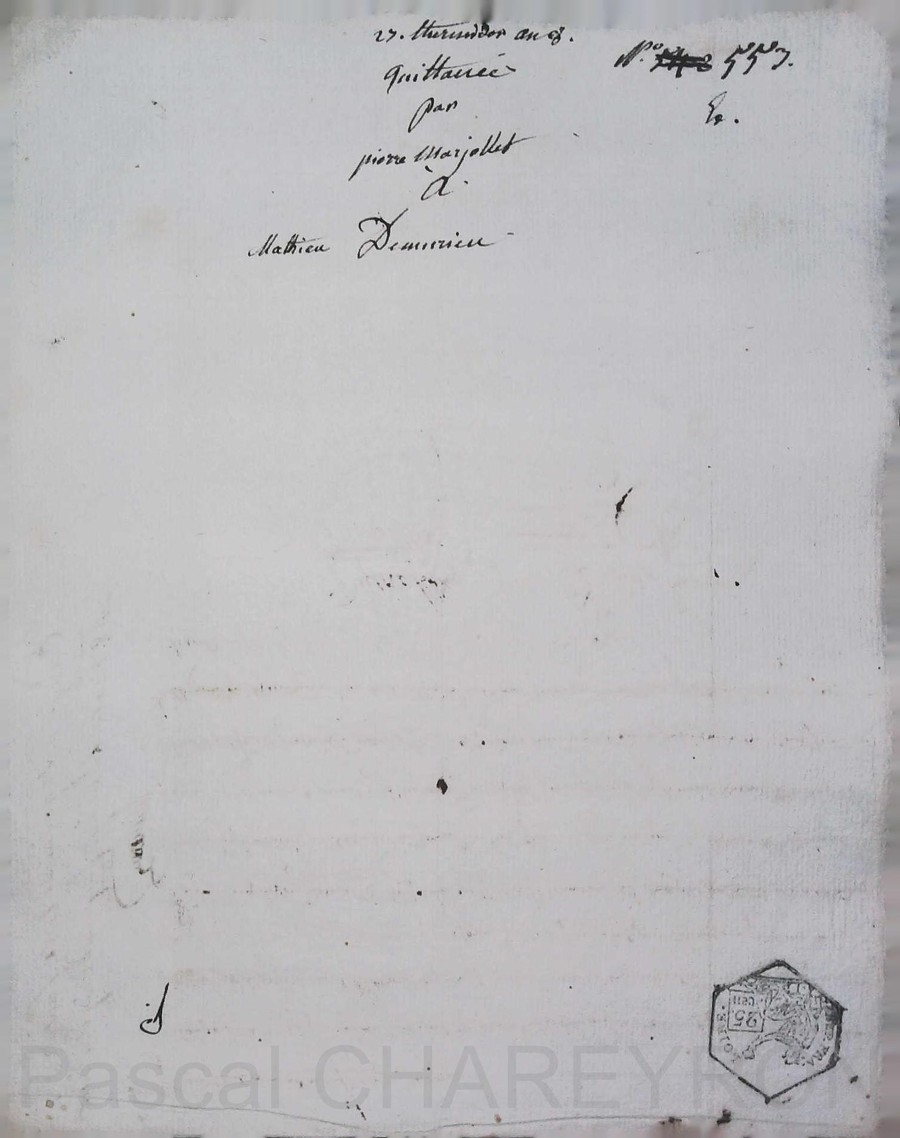 27. thermidor an 8.
N.º 557.
quittance
par
pierre Marjollet
à
Mathieu Demurieu
25
CEN
Pascal CHAREYRON